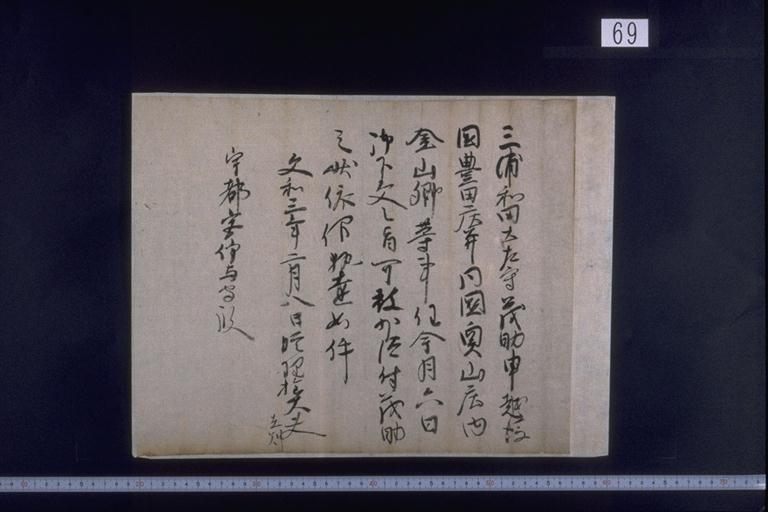 69
三浦和田土佐守茂助申越後
国豊田庄并同国奥山庄内
金山郷等事任今月六日
御下文之旨可被沙汰付茂助
之状依仰執達如件
文和三年二月八日修理権大夫
在判
宇都宮伊与守殿